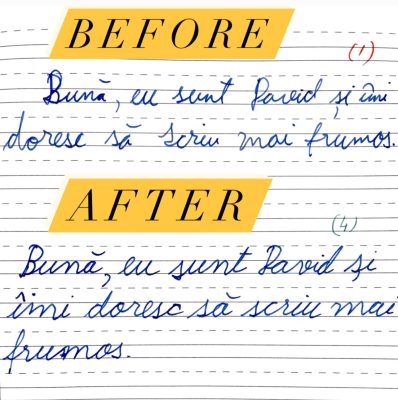 BEFORE
(1)
Bună, eu sunt David și îmi
doresc să scriu mai frumos.
AFTER
(4)
Bună, eu sunt David și
îmi doresc să scriu mai
frumos.